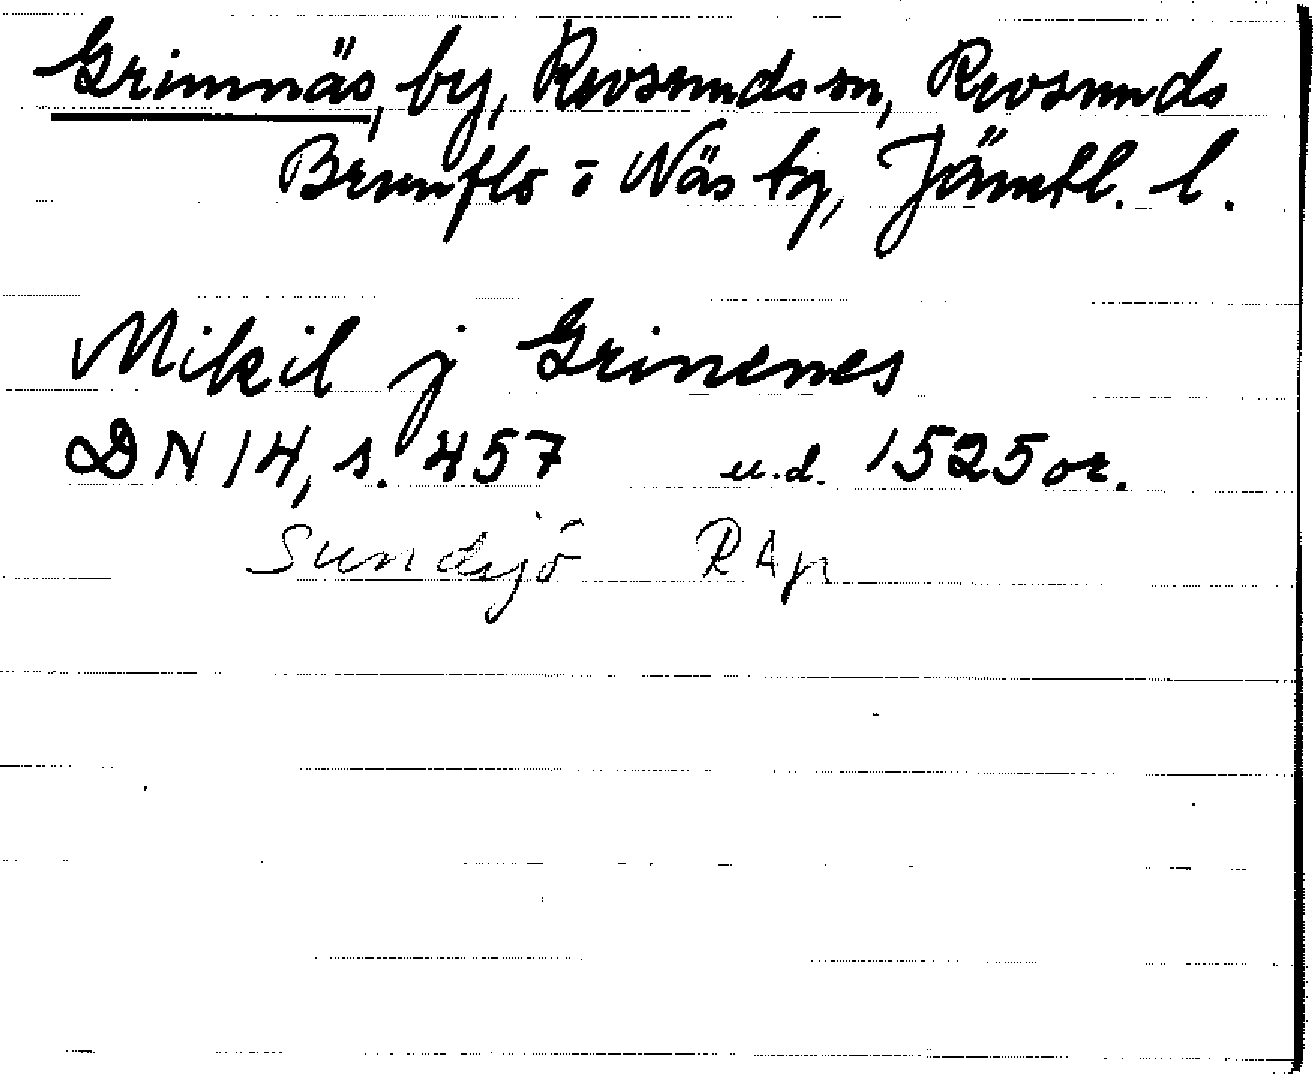 Grimnäs, by, Revsunds sn, Revsunds
Brunflo o Näs tg, Jämtl. l.
Mikil j Grimenes
DN 14, s. 457 u.d. 1525 or.
Sundsjö